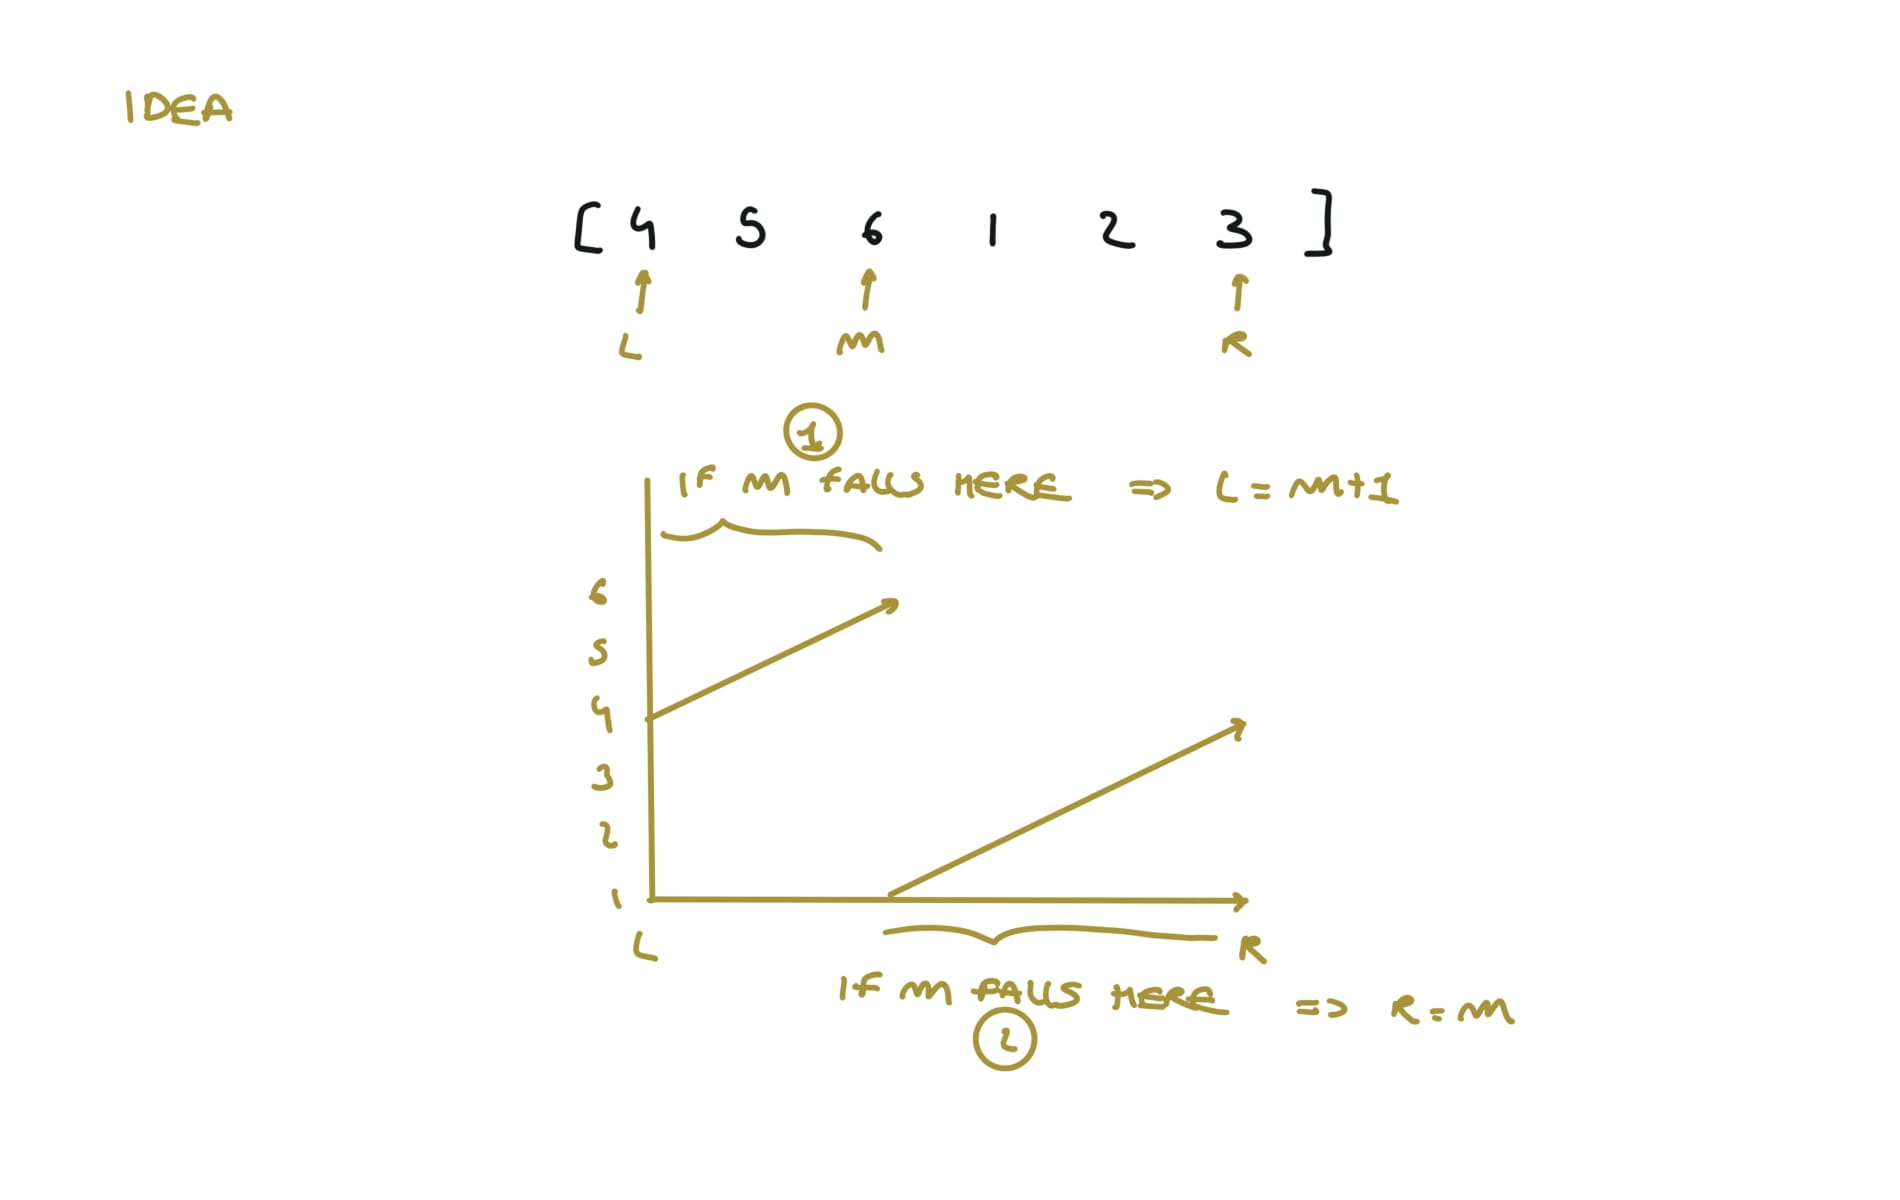 IDEA
[ 4 5 6 1 2 3 ]
L m R
1
IF m FALLS HERE => L = m+1
6
5
4
3
2
1
L R
IF m FALLS HERE => R = m
2